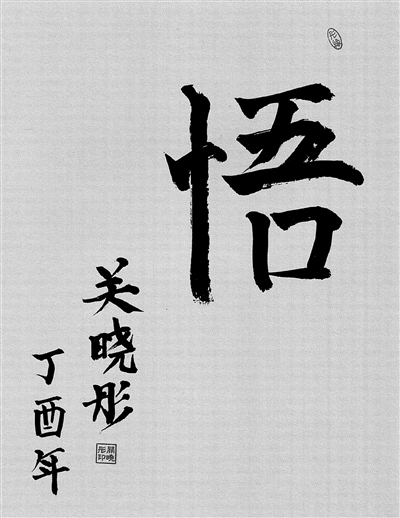 悟
关晓彤
丁酉年